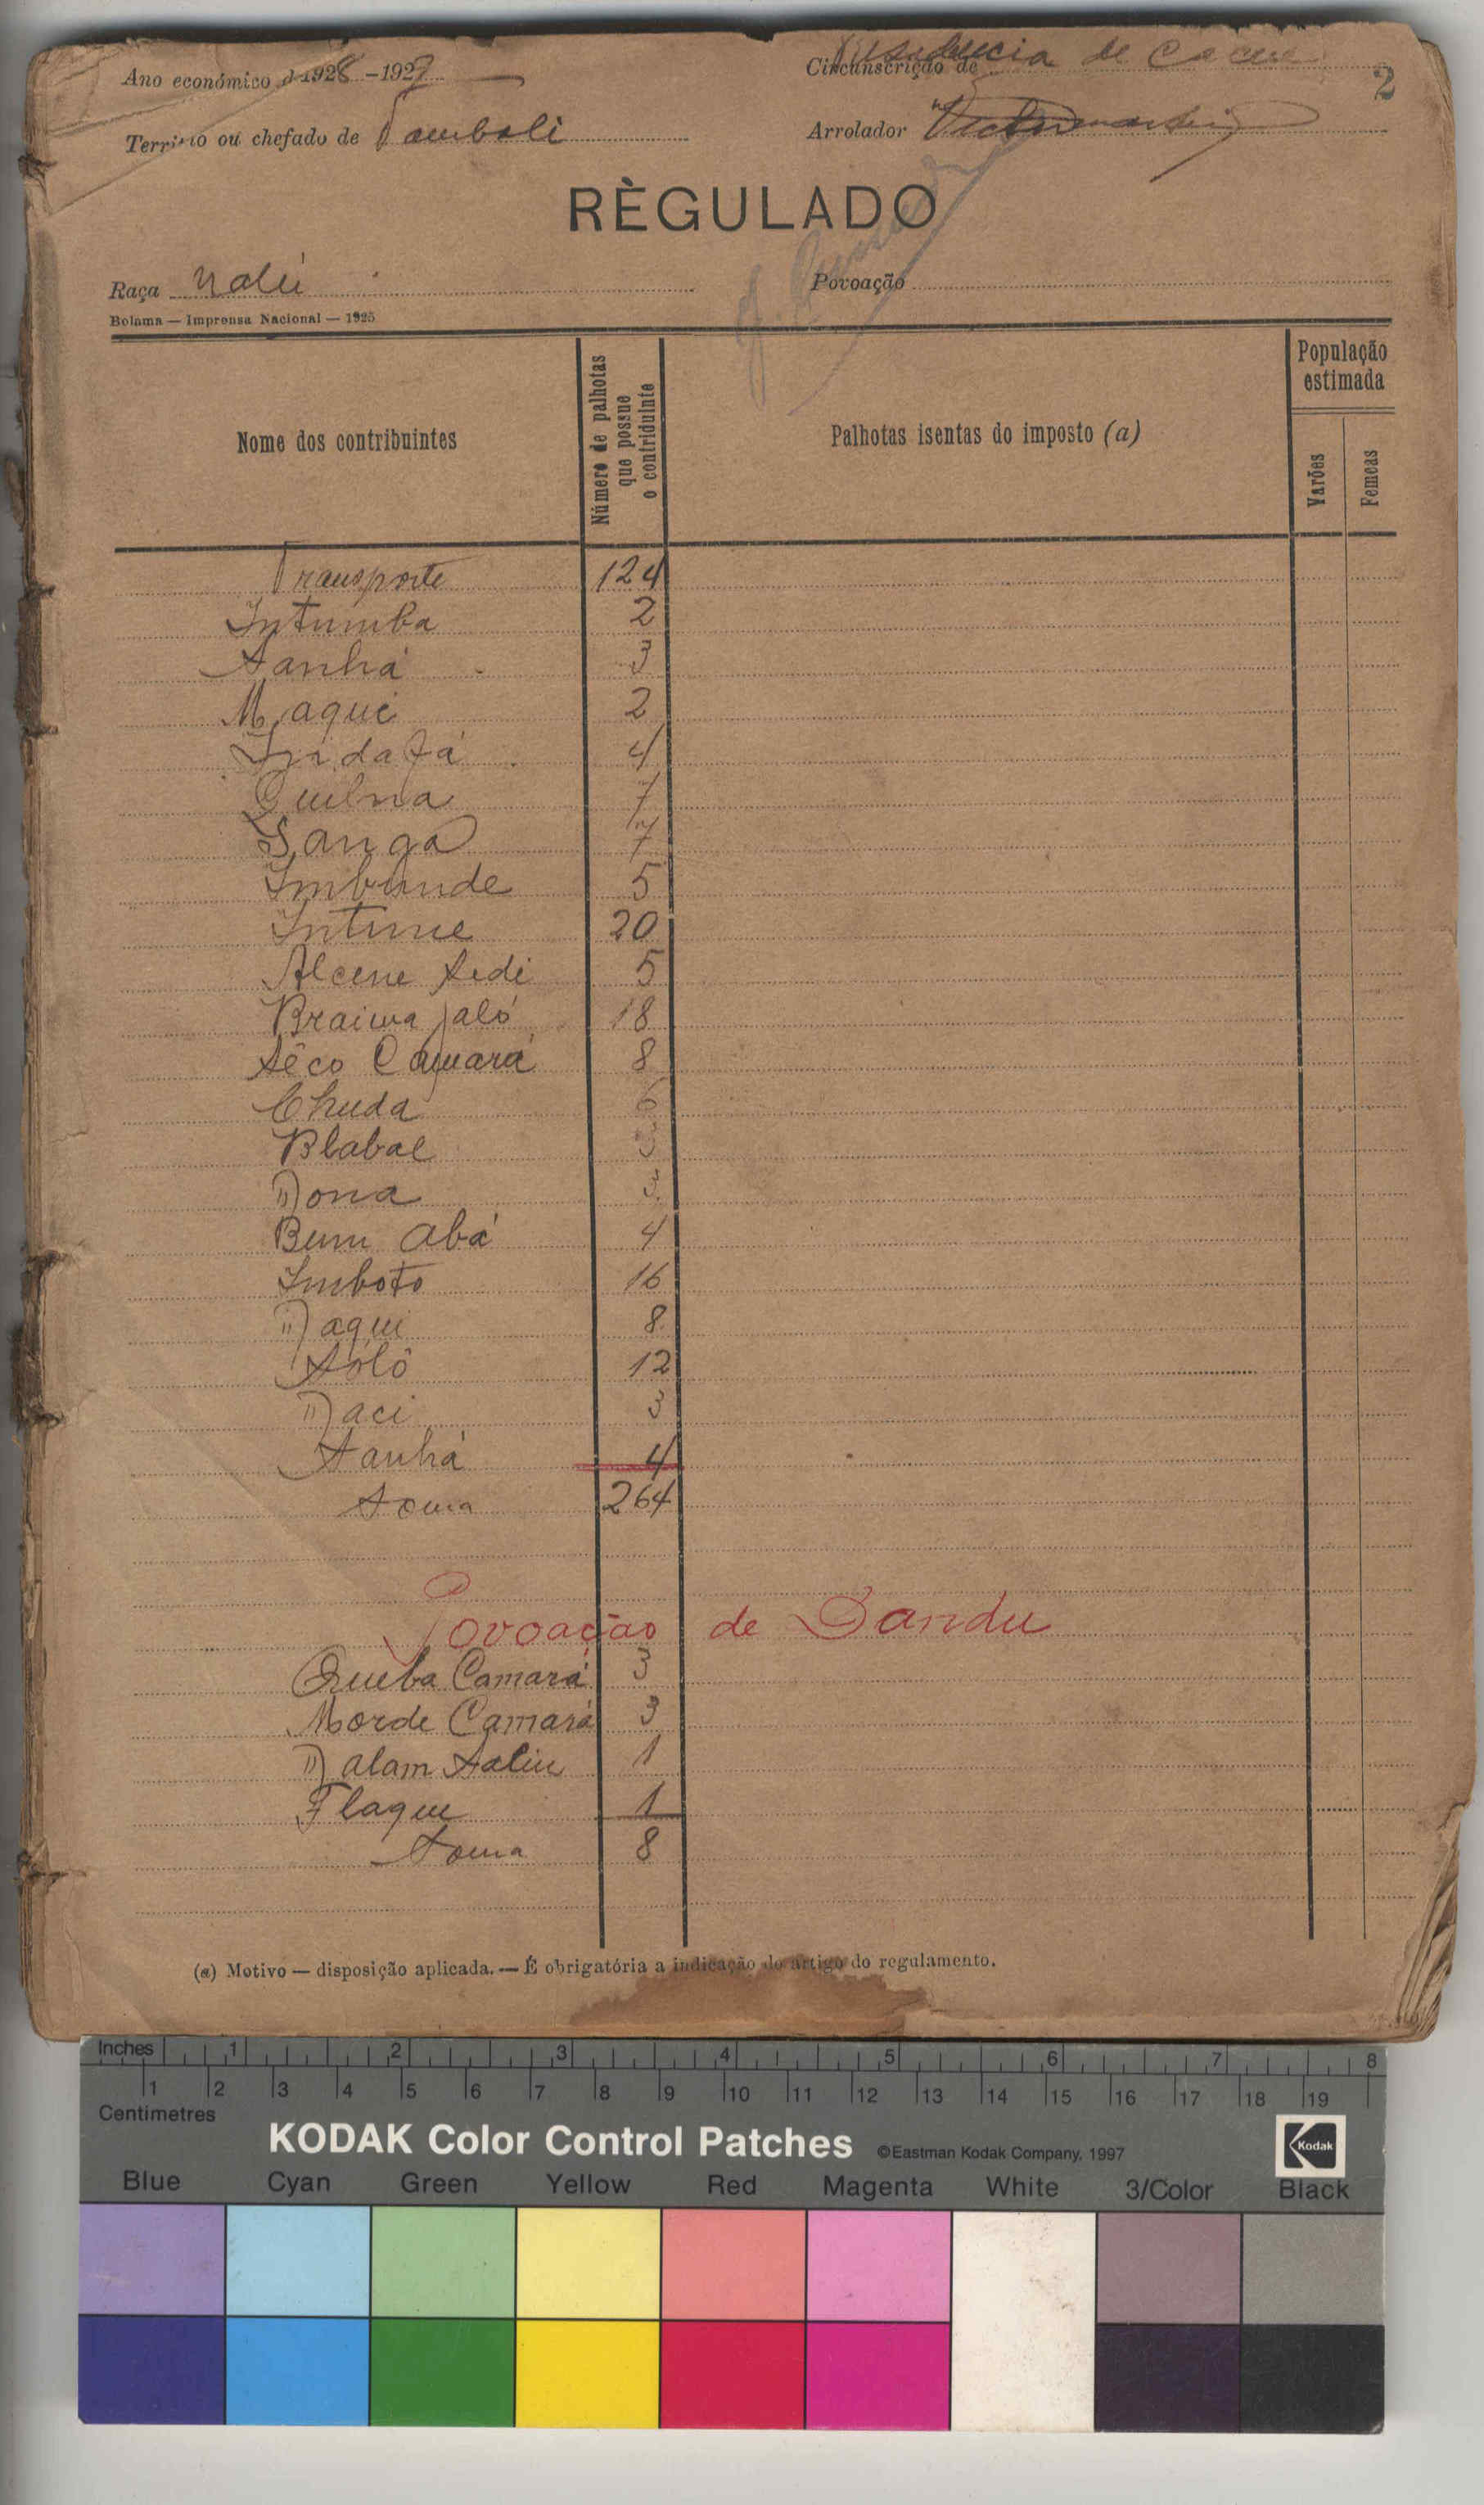 Ano económico d 1928 - 1927
Circunscrição de Residencia de Cacine
2
Território ou chefado de Tombali
Arrolador
RÈGULADO
Raça Nalú
Povoação
Bolama — Imprensa Nacional — 1925
Nome dos contribuintes
Número de palhotas que possue o contriduinte
Palhotas isentas do imposto (a)
População estimada
Varões
Femeas
Transporte 124
Intumba 2
Sanhá 3
Maqué 2
Indafá 4
Quilna 7
Sanga 7
Imbunde 5
Intime 20
Alcene Sedi 5
Braima Jaló 18
Sêco Camará 8
Chuda
Blabal
Dona
Bum Abá 4
Imboto 16
Daqui 8
Sôlô 12
Daci 3
Sanhá 4
Soma 264
Povoação de Sandu
Queba Camará 3
Morde Camará 3
Dalam Saliu 1
Flaque 1
Soma 8
(a) Motivo — disposição aplicada. — É obrigatória a indicação do artigo do regulamento.
Inches 1 2 3 4 5 6 7 8
1 2 3 4 5 6 7 8 9 10 11 12 13 14 15 16 17 18 19
Centimetres
KODAK Color Control Patches ©Eastman Kodak Company, 1997 Kodak
Blue Cyan Green Yellow Red Magenta White 3/Color Black